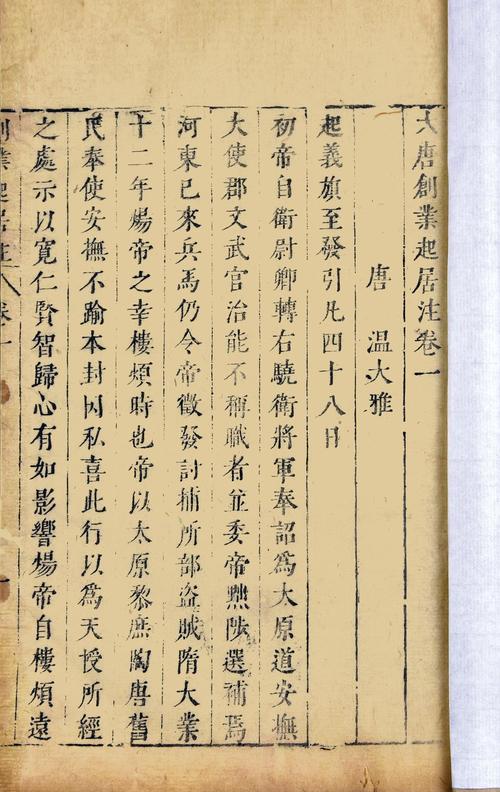 大唐創業起居注卷一
唐 溫大雅
起義旗至發引凡四十八日
初帝自衛尉卿轉右驍衛將軍奉詔為太原道安撫
大使郡文武官治能不稱職者並委帝黜陟選補焉
河東已來兵馬仍令帝徵發討捕所部盜賊隋大業
十二年煬帝之幸樓煩時也帝以太原黎庶陶唐舊
民奉使安撫不踰本封因私喜此行以為天授所經
之處示以寬仁賢智歸心有如影響煬帝自樓煩遠
創業起居注 卷一